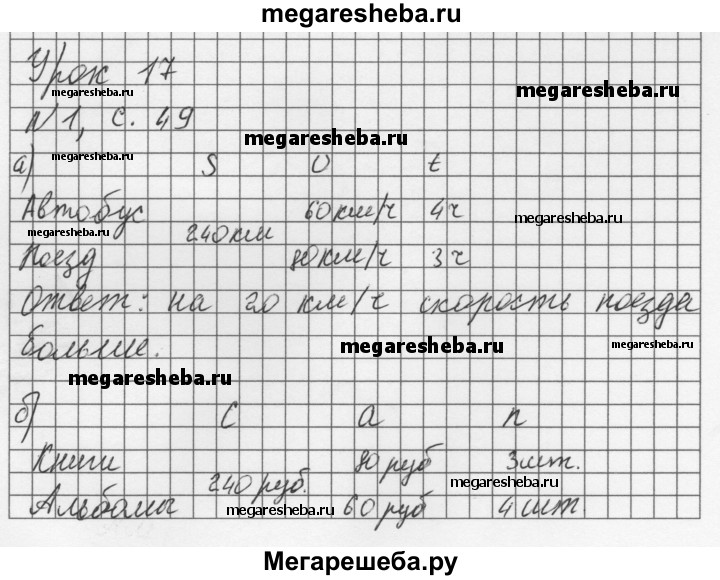 megaresheba.ru
Урок 17
megaresheba.ru
megaresheba.ru
N 1, с. 49
megaresheba.ru
а) megaresheba.ru S υ t
Автобус 60 км/ч 4 ч
megaresheba.ru 240 км megaresheba.ru
Поезд 80 км/ч 3 ч
Ответ: на 20 км/ч скорость поезда
больше. megaresheba.ru megaresheba.ru
megaresheba.ru
б) С а n
Книги 80 руб 3 шт.
240 руб. megaresheba.ru
Альбомы megaresheba.ru 60 руб 4 шт.
Мегарешеба.ру